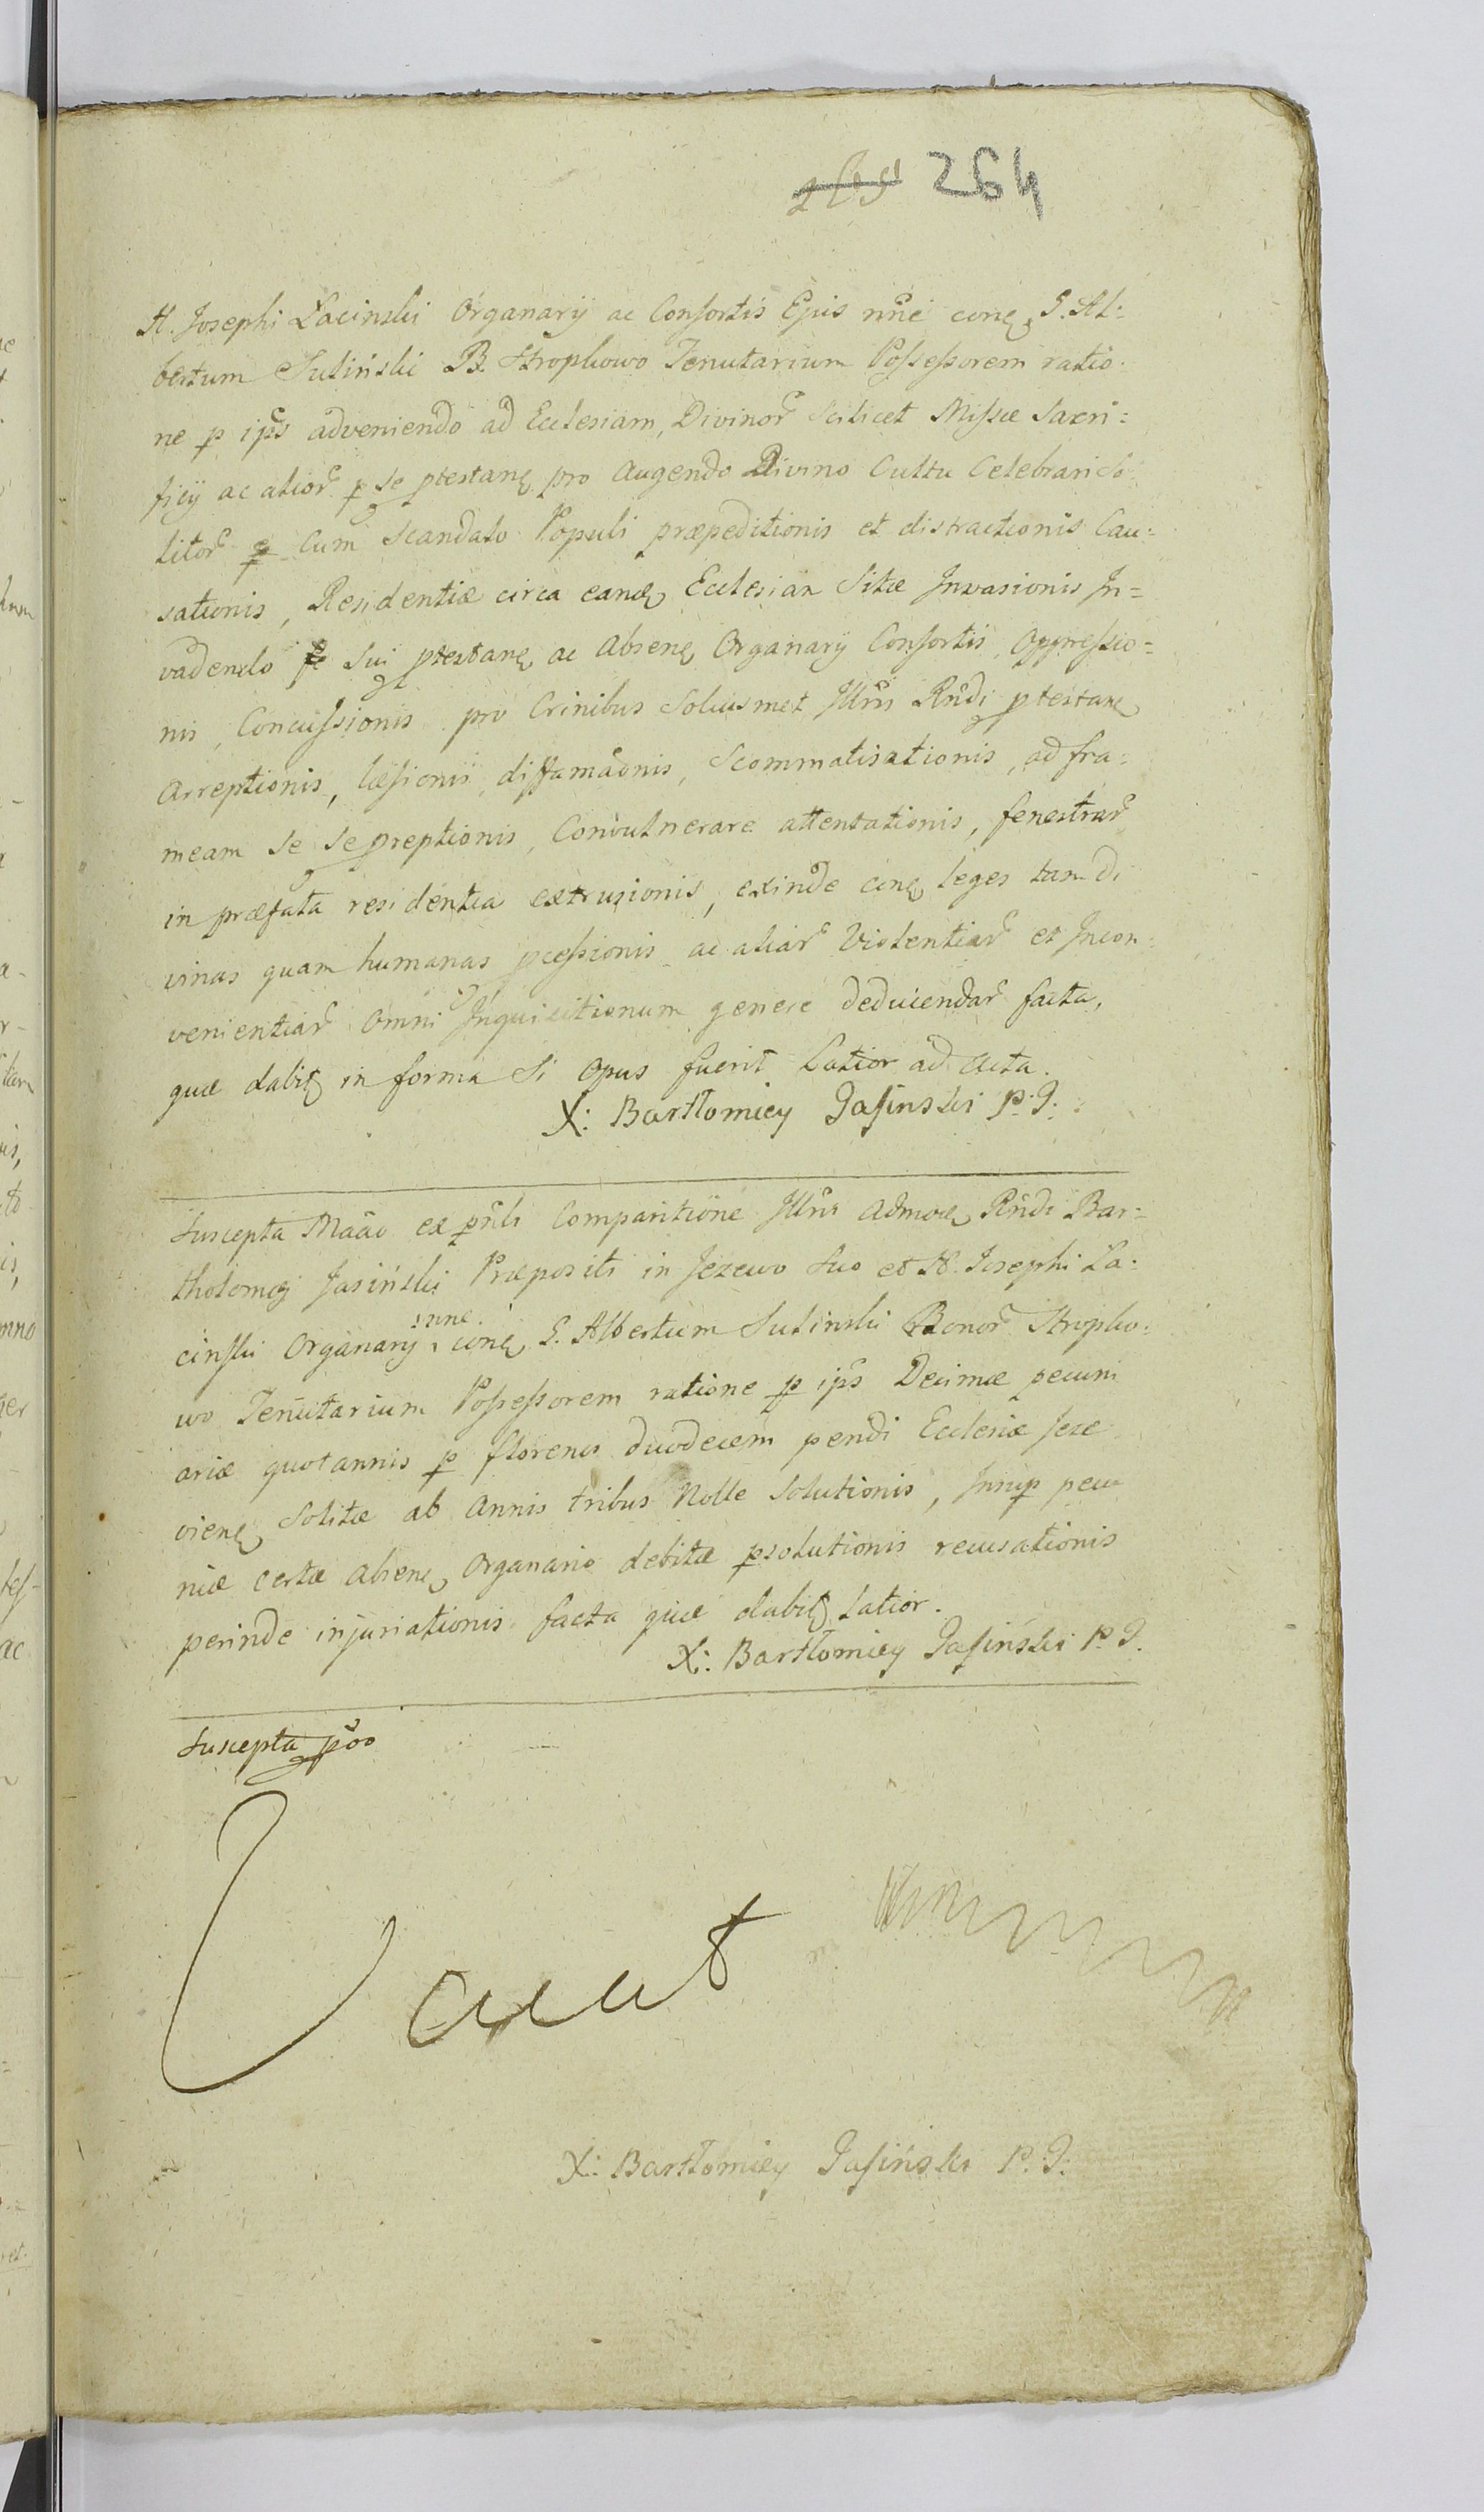 264
H. Josephi Łacinski Organarÿ ac Consortis Ejus nñe conę G. Al=
bertum Suliński B. Strophowo Tenutarium Possessorem ratio-
ne p ip̃s adveniendo ad Ecclesiam, Divinor̃ Scilicet Missæ Sacri=
ficÿ ac alior̃ p se ptestanę pro augendo Divino Cultu Celebrari So-
litor̃ Cum Scandalo Populi præpeditionis et distractionis Cau=
sationis, Residentiæ circa eandę Ecclesiam Sitæ Invasionis In=
vadendo Sui ptestanę ac absenę Organarÿ Consortis, oppressio=
nis, Concussionis pro Crinibus Soliusmet Illñis Rñdi ptestanę
arreptionis, læsionis, diffamãonis, Scommatisationis, ad fra=
meam se se preptionis, Convulnerare attentationis, fenestrar̃
in præfata residentia extrusionis, exinde conę leges tam di
vinas quam humanas pcessionis ac aliar̃ Violentiar̃ et Incon-
venientiar̃ omni Inquisitionum genere deducendar̃ facta,
quæ dabitę in forma Si opus fuerit Latior ad acta.
X: Bartłomiey Jasinski P: J:
Suscepta Mãão ex pñti Comparitione Illñis admoę Rñdi Bar=
tholomæj Jasiński Præpositi in Jezewo Suo et H. Josephi Ła-
cinski Organarÿ nñe conę G. Albertum Sulinski Bonor̃ Stropho-
wo Tenutarium Possessorem ratione p ip̃s Decimæ pecuni
ariæ quotannis p florenos duodecem pendi Ecclesiæ Jeze
vienę Solitæ ab annis tribus Nolle Solutionis, Insup pecu
niæ certæ absenę Organario debitæ psolutionis recusationis
perinde injuriationis facta quæ dabitę Latior.
X: Bartłomiey Jasiński P. J.
Suscepta põo
Vacat
X: Bartłomiey Jasiński P. J.